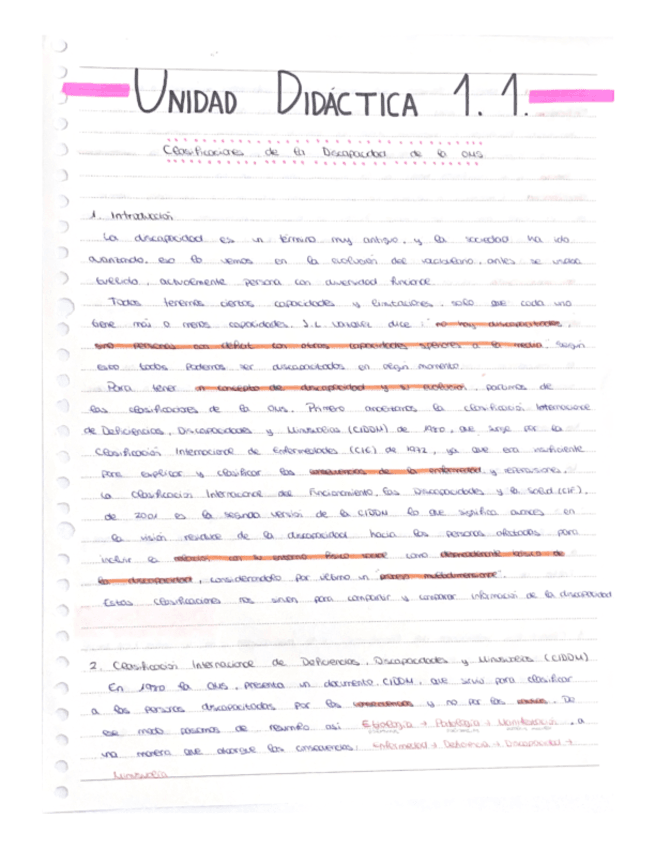 UNIDAD DIDÁCTICA 1.1.
Clasificaciones de la Discapacidad de la OMS
1. Introducción
La discapacidad es un término muy antiguo, y la sociedad ha ido
avanzando, eso lo vemos en la evolución del vocabulario, antes se usaba
tullido, actualmente persona con diversidad funcional.
Todos tenemos ciertas capacidades y limitaciones, solo que cada uno
tiene más o menos capacidades. J.L. dice: "no hay discapacitados,
sino personas con déficit con otras capacidades superiores a la media. Según
esto todos podemos ser discapacitados en algún momento.
Para tener un concepto de discapacidad y su evolución, partimos de
las clasificaciones de la OMS. Primero la clasificación Internacional
de Deficiencias, Discapacidades y Minusvalías (CIDDM) de 1980, que surge por la
Clasificación Internacional de Enfermedades (CIE) de 1972, ya que era insuficiente
para explicar y clasificar las consecuencias de la enfermedad y
La Clasificación Internacional del Funcionamiento, las Discapacidades y la Salud (CIF),
de 2001 es la segunda versión de la CIDDM lo que significa avances en
la visión de la discapacidad hacia las personas afectadas para
incluir la relación con su entorno físico social como básico de
la discapacidad, considerándolo por último un "proceso multidimensional".
Estas clasificaciones nos sirven para compartir y comparar información de la discapacidad
2. Clasificación Internacional de Deficiencias, Discapacidades y Minusvalías (CIDDM)
En 1980 la OMS, presenta un documento, CIDDM, que sirvió para clasificar
a las personas discapacitadas por las consecuencias y no por las causas. De
ese modo pasamos de resumirlo así Etiología → Patología → Manifestación, a
una manera que abarque las consecuencias: Enfermedad → Deficiencia → Discapacidad →
Minusvalía